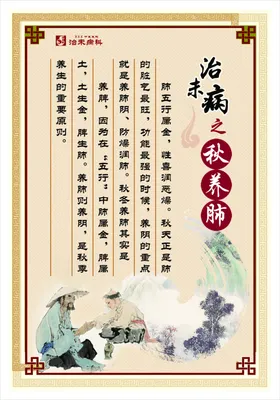 治未病科
治未病之秋养肺
肺五行属金，性喜润恶燥。秋天正是肺
的脏气最旺，功能最强的时候，养阴的重点
就是养肺阴、防燥润肺。秋冬养肺其实是
养脾，因为在“五行”中肺属金，脾属
土，土生金，脾生肺。养肺则养阴，是秋季
养生的重要原则。